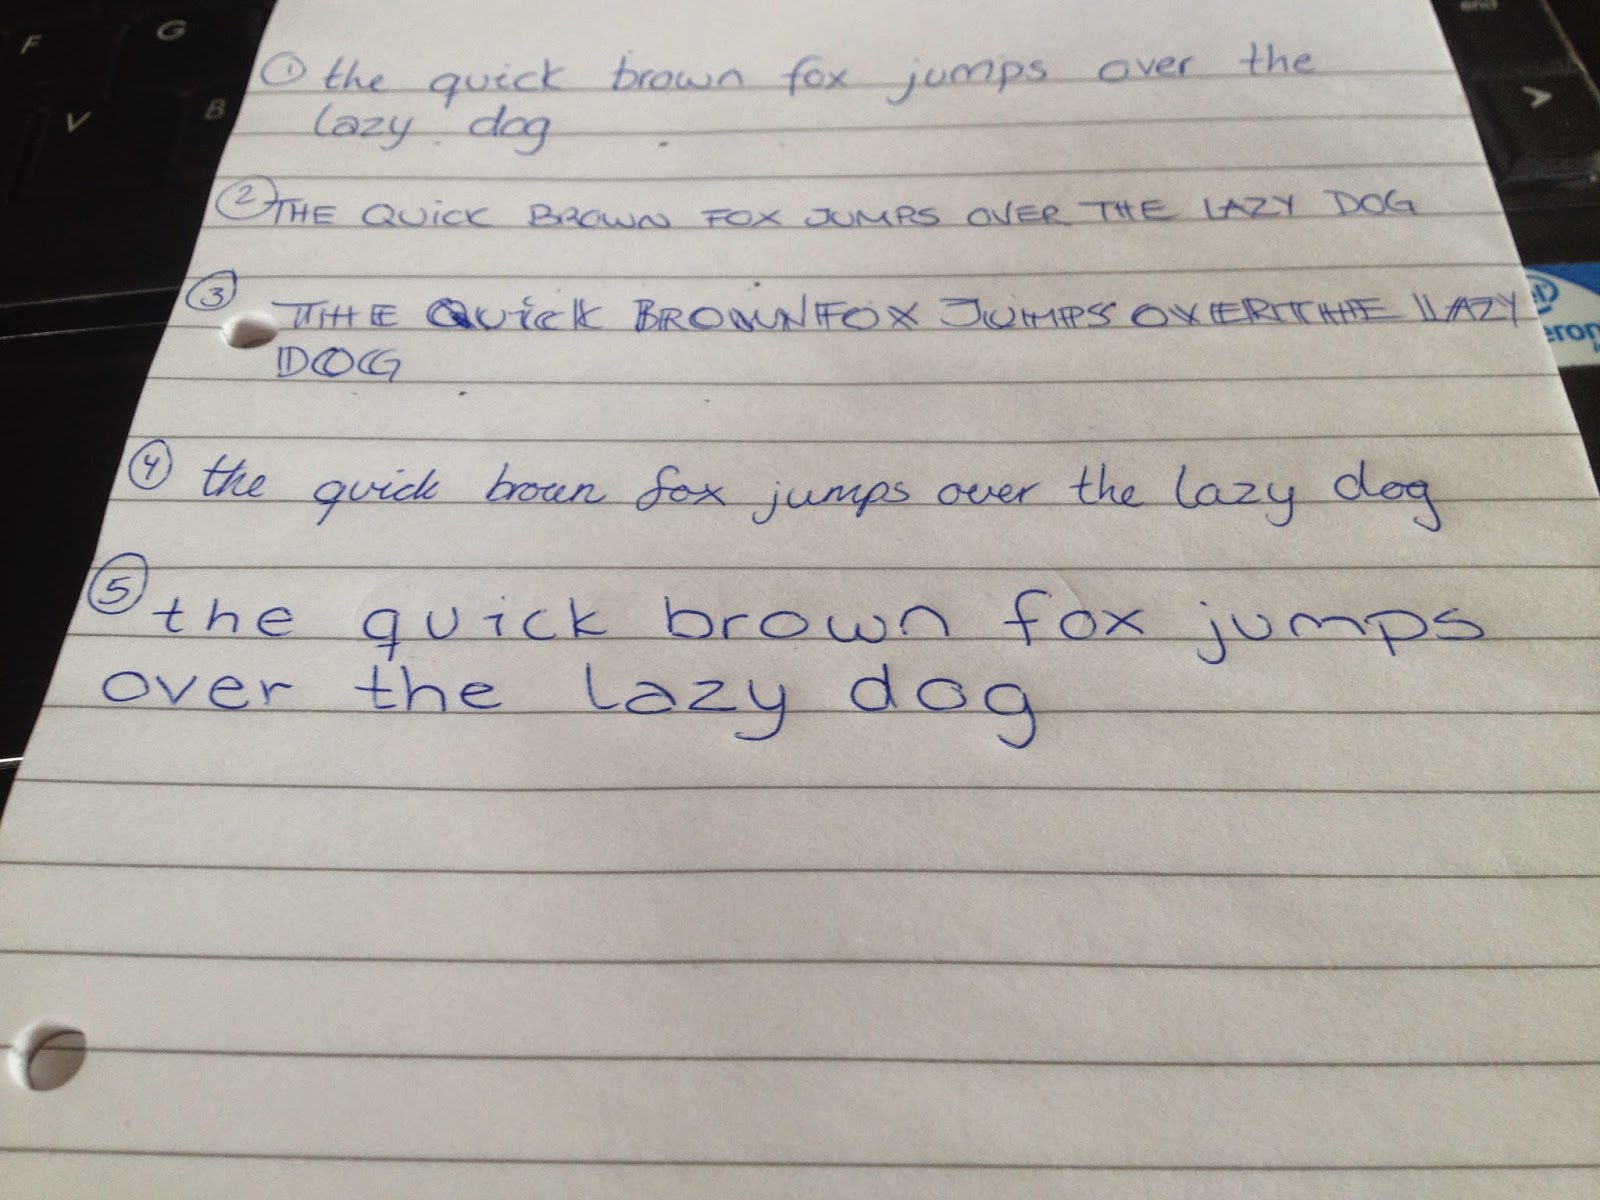 F G
V B
end
>
① the quick brown fox jumps over the
lazy dog
② THE QUiCK BROWN FOX JUMPS OVER THE LAZY DOG
③ THE QUiCK BROWN FOX JUMPS OVER THE LAZY
DOG
④ the quick brown fox jumps over the lazy dog
⑤ the quick brown fox jumps
over the lazy dog